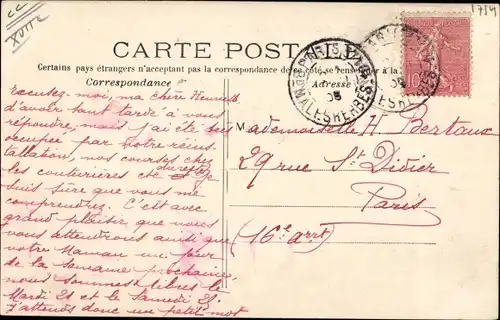 CC
XVIIe
1714
CARTE POSTALE
Certains pays étrangers n'acceptant pas la correspondance de ce côté, se renseigner à la
Correspondance
Adresse
PARIS
MALESHERBES
05
10
Excusez-moi, ma chère Henriette
d'avoir tant tardé à vous
répondre, mais j'ai été bien
occupée par notre réins-
tallation, nos courses chez
les couturières etc. Je
suis sûre que vous me
comprendrez. C'est avec
grand plaisir que nous
vous attendrons ainsi que
votre Maman un jour
de la semaine prochaine
nous sommes libres le
Mardi 21 et le Samedi 25.
J'attends donc un petit mot
Mademoiselle H. Bertaux
29 rue St Didier
Paris
(16e arrt)